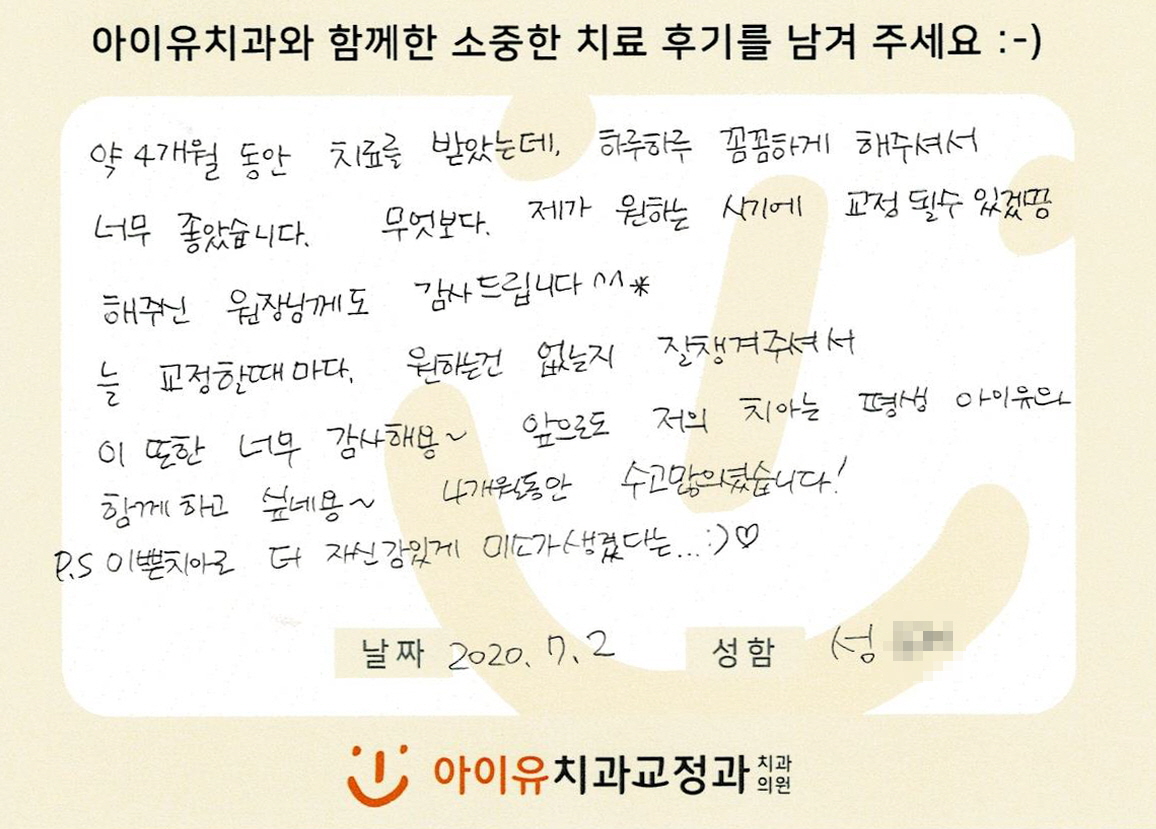 아이유치과와 함께한 소중한 치료 후기를 남겨 주세요 :-)
약 4개월 동안 치료를 받았는데, 하루하루 꼼꼼하게 해주셔서
너무 좋았습니다. 무엇보다. 제가 원하는 시기에 교정 될수 있겠끔
해주신 원장님께도 감사드립니다 ^^*
늘 교정할때마다, 원하는건 없는지 잘챙겨주셔서
이 또한 너무 감사해용~ 앞으로도 저의 치아는 평생 아이유와
함께하고 싶네용~ 4개월동안 수고많의셨습니다!
P.S 이쁜치아로 더 자신감있게 미소가생겼다는...:)♡
날짜 2020. 7. 2 성함 성
아이유치과교정과 치과
의원